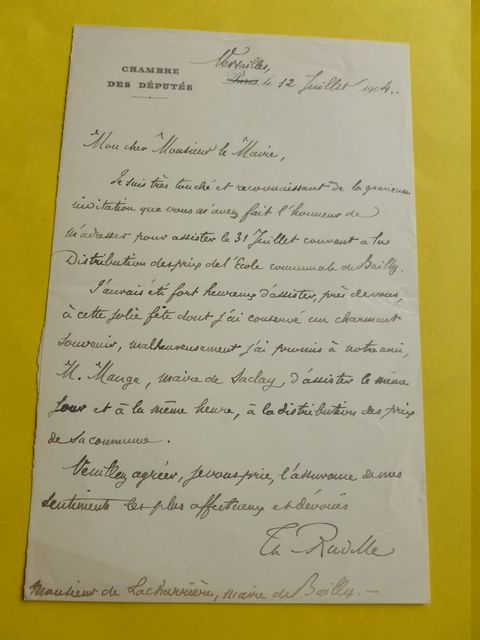 CHAMBRE
DES DÉPUTÉS
Versailles,
Paris le 12 Juillet 1904.-
Mon cher Monsieur le Maire,
Je suis très touché et reconnaissant de la gracieuse
invitation que vous m'avez fait l'honneur de
m'adresser pour assister le 31 Juillet courant à la
Distribution des prix de l'Ecole communale de Bailly.
J'aurais été fort heureux d'assister, près de vous,
à cette jolie fête dont j'ai conservé un charmant
souvenir, malheureusement j'ai promis à notre ami,
M. Mange, maire de Saclay, d'assister le même
jour et à la même heure, à la distribution des prix
de sa commune.
Veuillez agréer, je vous prie, l'assurance de mes
sentiments les plus affectueux et dévoués
Th.
Monsieur de Lacharrière, maire de Bailly.-